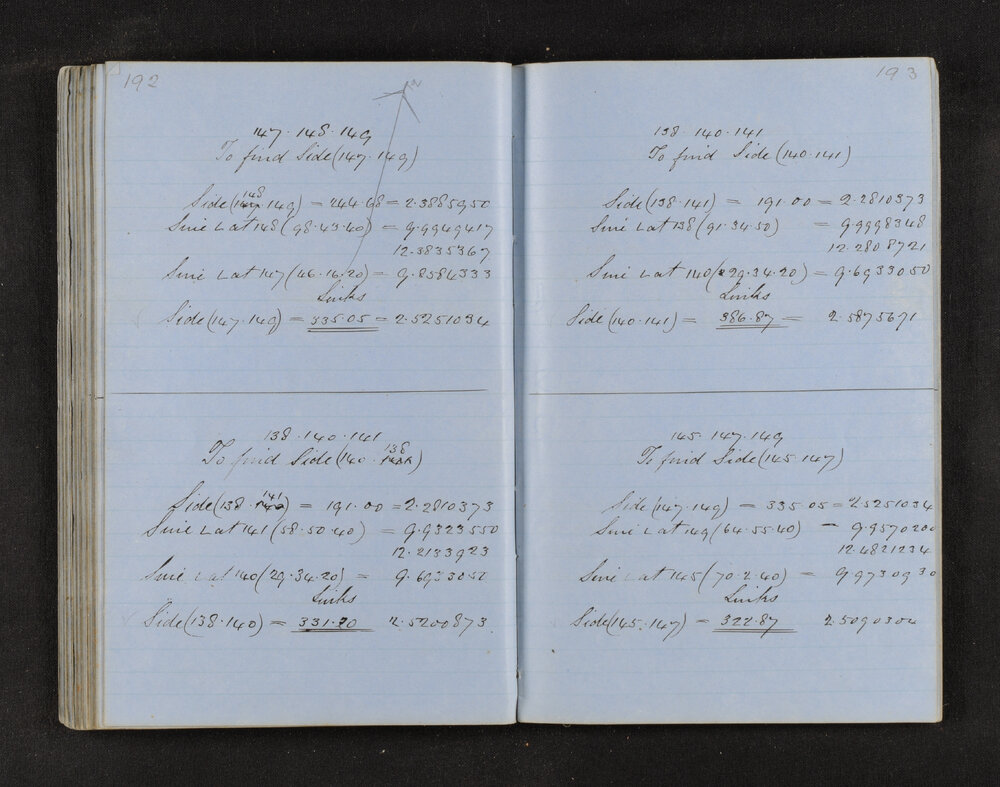 192
147.148.149
To find Side (147.149)
148
Side (147.149) = 244.68 = 2.3885950
Sine L at 148 (98.43.40) = 9.9949417
12.3835367
Sine L at 147 (46.16.20) = 9.8584333
Links
Side (147.149) = 335.05 = 2.5251034
138.140.141
138
To find Side (140.141)
141
Side (138.140) = 191.00 = 2.2810373
Sine L at 141 (58.50.40) = 9.9323550
12.2133923
Sine L at 140 (29.34.20) = 9.6933050
Links
Side (138.140) = 331.20 2.5200873
193
138.140.141
To find Side (140.141)
Side (138.141) = 191.00 = 2.2810373
Sine L at 138 (91.34.50) = 9.9998348
12.2808721
Sine L at 140 (29.34.20) = 9.6933050
Links
Side (140.141) = 386.87 = 2.5875671
145.147.149
To find Side (145.147)
Side (147.149) = 335.05 = 2.5251034
Sine L at 149 (64.55.40) = 9.9570200
12.4821234
Sine L at 145 (70.2.40) = 9.9730930
Links
Side (145.147) = 322.87 2.5090304